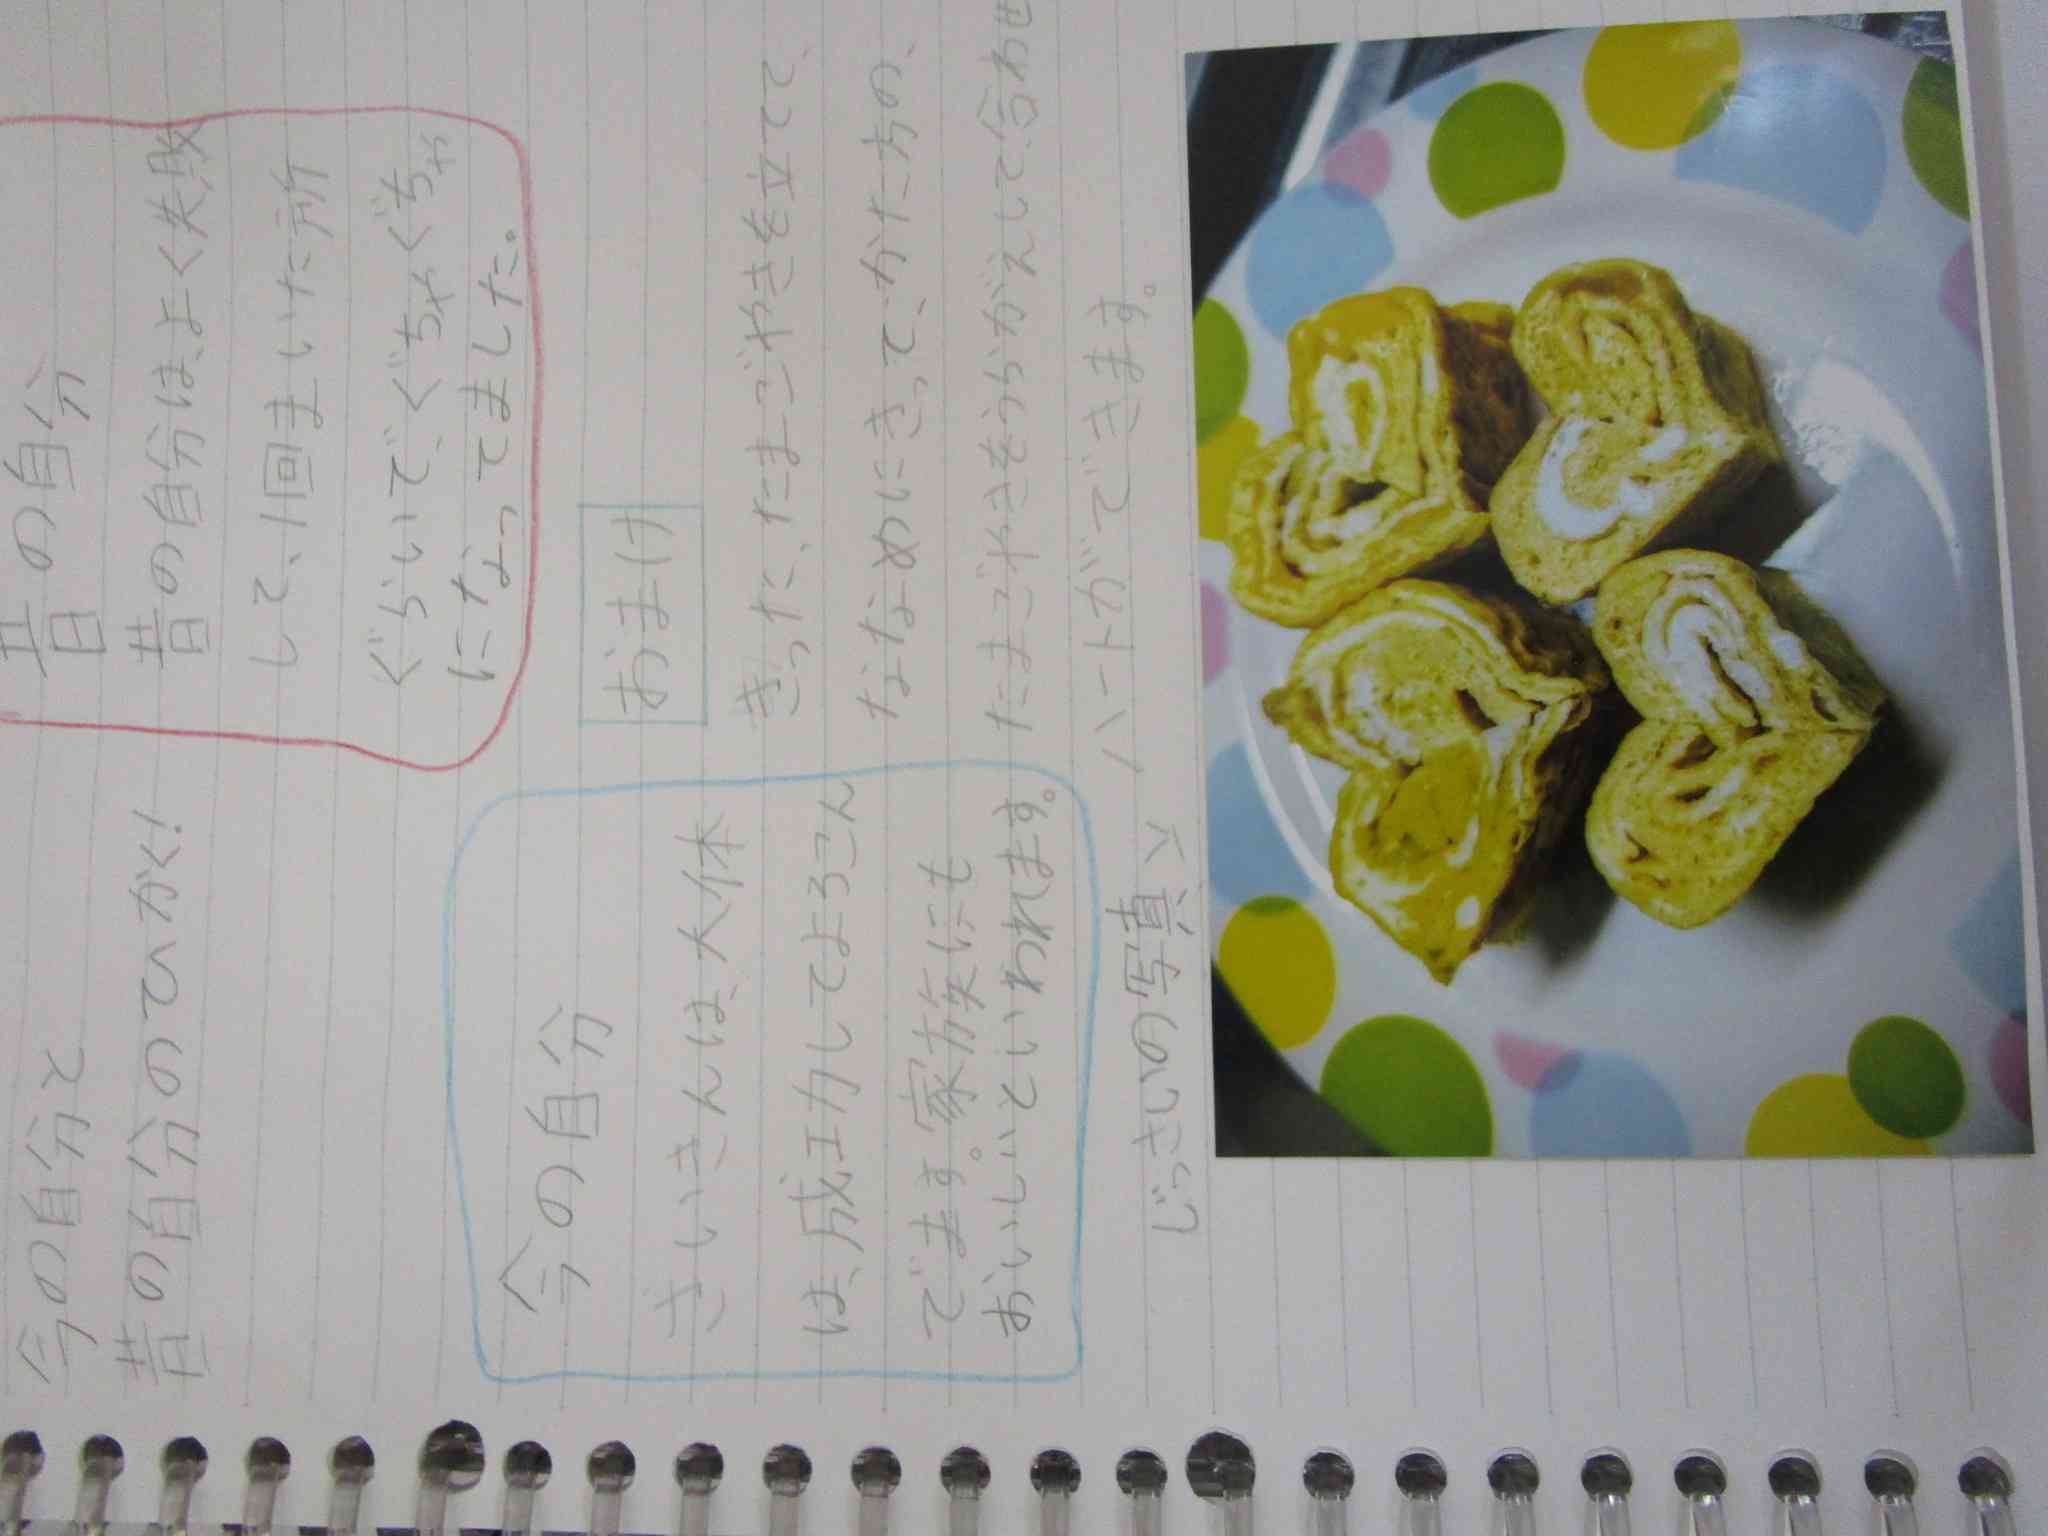 今の自分と
昔の自分のていがく!
昔の自分
昔の自分は、よく失敗
して、1回まいた所
ぐらいで、ぐちゃぐちゃ
になってました。
今の自分
さいきんは、大体
は、成功してよろこん
でます。家族にも
おいしいといわれます。
おまけ
きった、たまごやきを立てて、
ななめにきって、かたほうの、
たまごやきをうらがえして合わ
ハートができます。